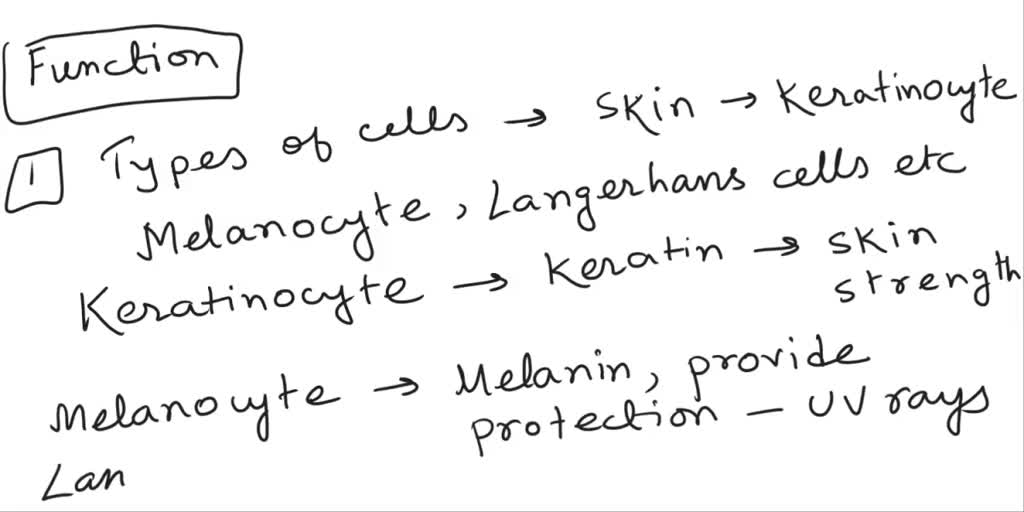 Function
1 Types of cells → Skin → Keratinocyte
Melanocyte, Langerhans cells etc
Keratinocyte → Keratin → Skin
strength
Melanocyte → Melanin, provide
protection - UV rays
Lan